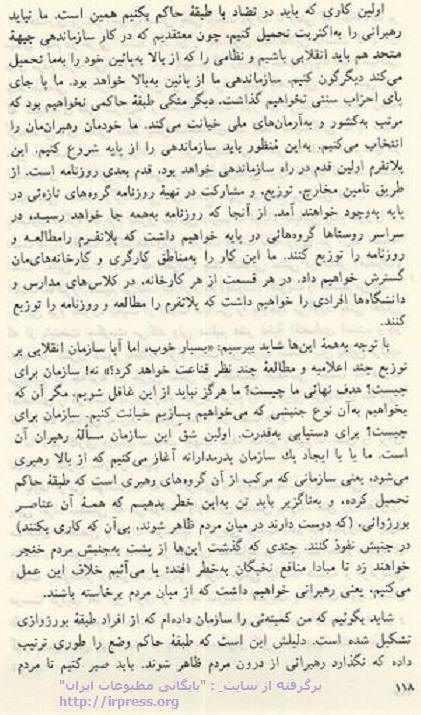 اولین کاری که باید در تضاد با طبقهٔ حاکم بکنیم همین است. ما نباید
رهبرانی را به‌اکثریت تحمیل کنیم، چون معتقدیم که در کار سازماندهی جبههٔ
متحد هم باید انقلابی باشیم و نظامی را که از بالا به‌پائین خود را به‌ما تحمیل
می‌کند دیگرگون کنیم. سازماندهی ما از پائین به‌بالا خواهد بود. ما پا جای
پای احزاب سنتی نخواهیم گذاشت. دیگر متکی طبقهٔ حاکمی نخواهیم بود که
مرتب به‌کشور و به‌آرمان‌های ملی خیانت می‌کند. ما خودمان رهبران‌مان را
انتخاب می‌کنیم. به‌این مُنظور باید سازماندهی را از پایه شروع کنیم. این
پلاتفرم اولین قدم در راه سازماندهی خواهد بود. قدم بعدی روزنامه است. از
طریق تامین مخارج، توزیع، و مشارکت در تهیهٔ روزنامه گروه‌های تازه‌ئی در
پایه به‌وجود خواهند آمد. از آنجا که روزنامه به‌همه جا خواهد رسید، در
سراسر روستاها گروه‌هائی در پایه خواهیم داشت که پلاتفرم رامطالعه و
روزنامه را توزیع کنند. ما این کار را به‌مناطق کارگری و کارخانه‌های‌مان
گسترش خواهیم داد. در هر قسمت از هر کارخانه، در کلاس‌های مدارس و
دانشگاه‌ها افرادی را خواهیم داشت که پلاتفرم را مطالعه و روزنامه را توزیع
کنند.
با توجه به‌همهٔ این‌ها شاید بپرسیم: «بسیار خوب، اما آیا سازمان انقلابی بر
توزیع چند اعلامیه و مطالعهٔ چند نظر قناعت خواهد کرد؟» نه! سازمان برای
چیست؟ هدف نهائی ما چیست؟ ما هرگز نباید از این غافل شویم. مگر آن که
بخواهیم به‌آن نوع جنبشی که می‌خواهیم بسازیم خیانت کنیم. سازمان برای
چیست؟ برای دستیابی به‌قدرت. اولین شقّ این سازمان مسألهٔ رهبران آن
است. ما یا با ایجاد یك سازمان پدرمدارانه آغاز می‌کنیم که از بالا رهبری
می‌شود، یعنی سازمانی که مرکب از آن گروه‌های رهبری است که طبقهٔ حاکم
تحمیل کرده، و به‌ناگزیر باید تن به‌این خطر بدهیم که همهٔ آن عناصر
بورژوائی، (که دوست دارند در میان مردم ظاهر شوند، بی‌آن که کاری بکنند)
در جنبش نفوذ کنند. چندی که گذشت این‌ها از پشت به‌جنبش مردم خنجر
خواهند زد تا مبادا منافع نخبگان به‌خطر افتد؛ یا می‌آئیم خلاف این عمل
می‌کنیم، یعنی رهبرانی خواهیم داشت که از میان مردم برخاسته باشند.
شاید بگوئیم که من کمیته‌ئی را سازمان داده‌ام که از افراد طبقهٔ بورژوازی
تشکیل شده است. دلیلش این است که طبقهٔ حاکم وضع را طوری ترتیب
داده که نگذارد رهبرانی از درون مردم ظاهر شوند. باید صبر کنیم تا مردم
۱۱۸
برگرفته از سایت : "بایگانی مطبوعات ایران"
http://irpress.org